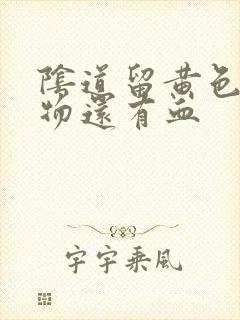 陰道留黄色
物還有血
宇宇乘風